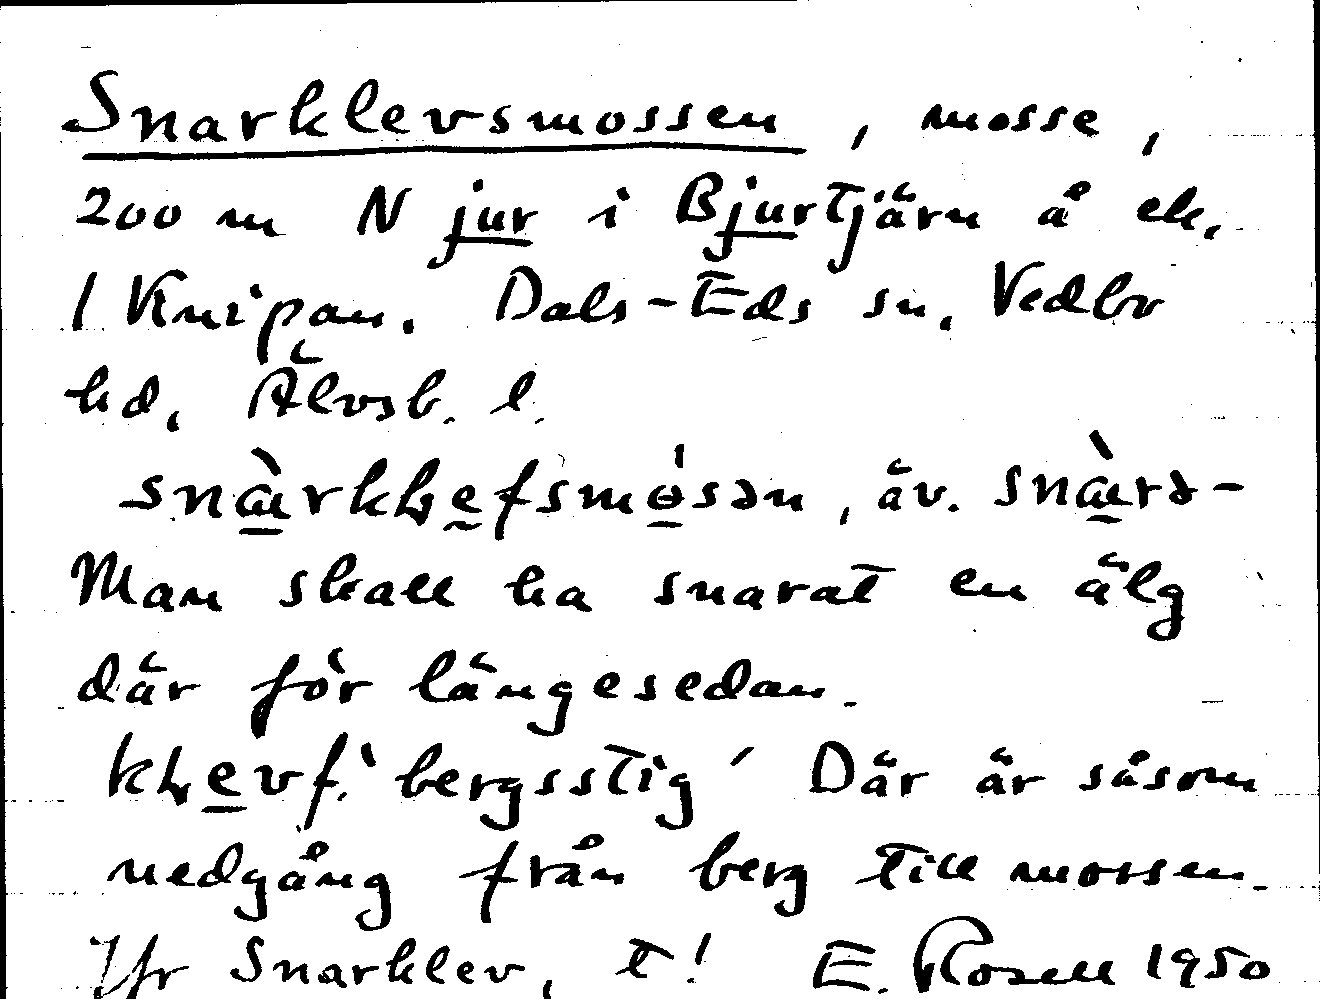 Snarklevsmossen, mosse,
200 m N jur i Bjurtjärn å ek.
/ Knipan. Dals-Eds sn, Vedbo
hd, Älvsb. l.
snàrkļefsmósən, äv. snàrə-
Man skall ha snarat en älg
där för längesedan.
kļev f. 'bergsstig' Där är såsom
nedgång från berg till mossen.
Jfr Snarklev, t! E. Rosell 1950